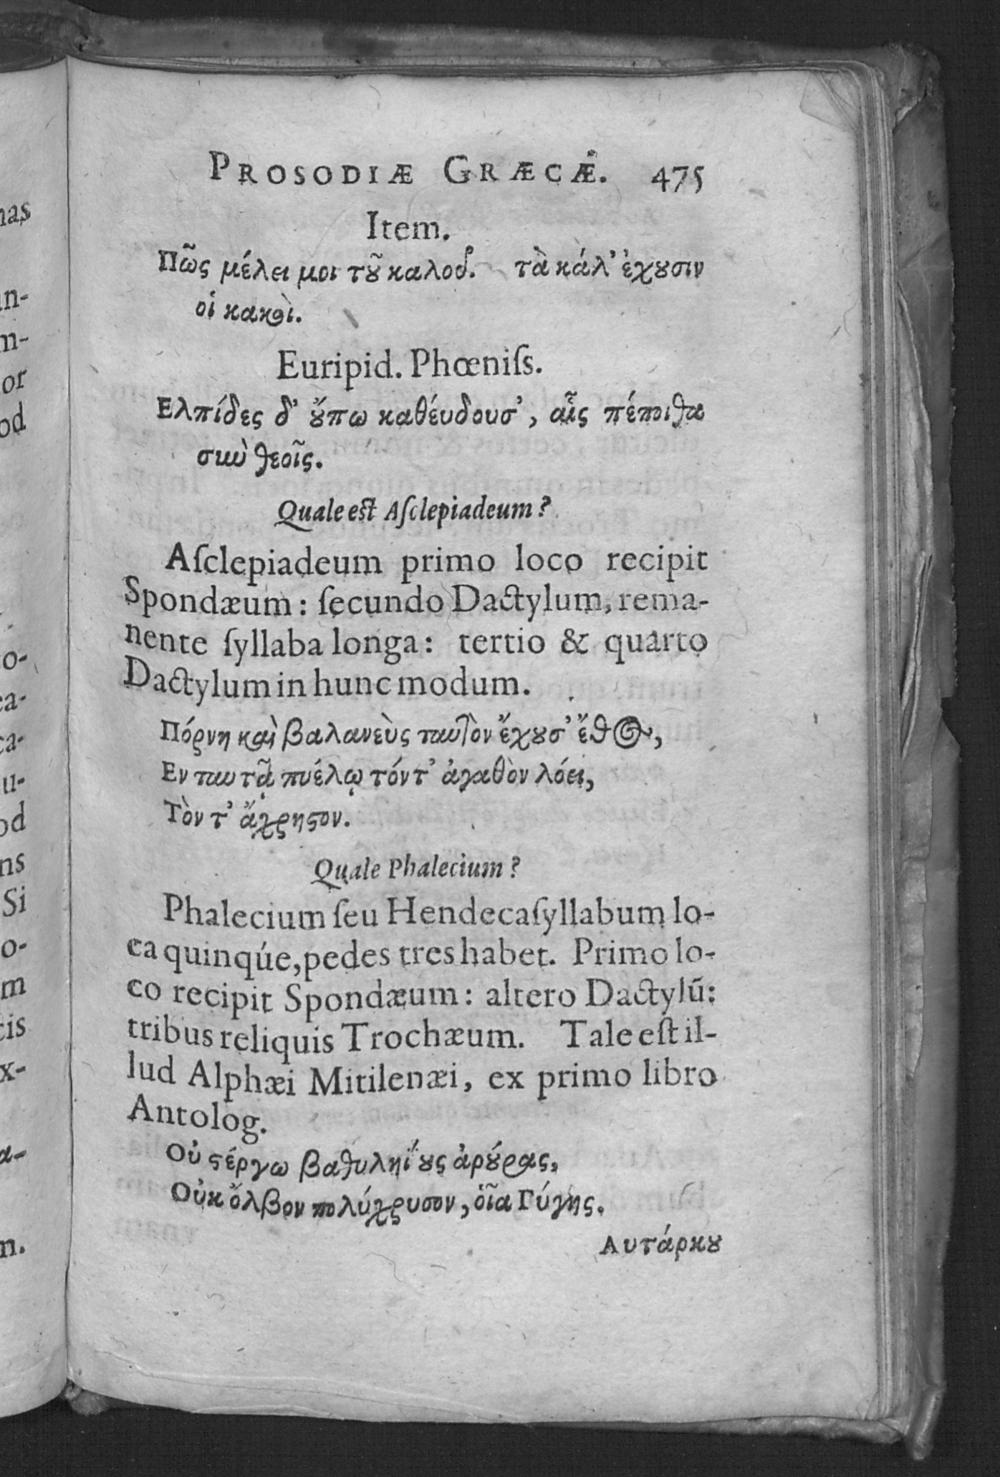 PROSODIÆ GRÆCÆ. 475
Item.
Πῶς μέλει μοι τȣ͂ καλοῦ. τὰ κάλ' ἐχȣσιν
οἱ κακοὶ.
Euripid. Phœniſs.
Ελπίδες δ' ȣ̓́πω καθέυδουσ', αἷς πέποιθα
σιωὺ θεοῖς.
Quale est Aſclepiadeum?
Aſclepiadeum primo loco recipit
Spondæum: ſecundo Dactylum, rema-
nente ſyllaba longa: tertio & quarto
Dactylum in hunc modum.
Πόρνη καὶ βαλανεὺς ταυτὸν ἔχȣσ' ἔθος,
Εν ταυτᾷ πυέλῳ τόντ' ἀγαθὸν λόει,
Τὸν τ' ἄχρηϛον.
Quale Phalecium?
Phalecium ſeu Hendecaſyllabum lo-
ca quinqúe, pedes tres habet. Primo lo-
co recipit Spondæum: altero Dactylũ:
tribus reliquis Trochæum. Tale eſt il-
lud Alphæi Mitilenæi, ex primo libro
Antolog.
Οὐ ϛέργω βαθυληΐȣς ἀρȣ́ρας,
Οὐκ ὄλβον πολύχρυσον, ὁῖα Γύγης.
Αυτάρκȣ
nas
n-
m-
or
od
o-
ea-
ca-
u-
od
ns
Si
o-
m
cis
x-
a-
n.